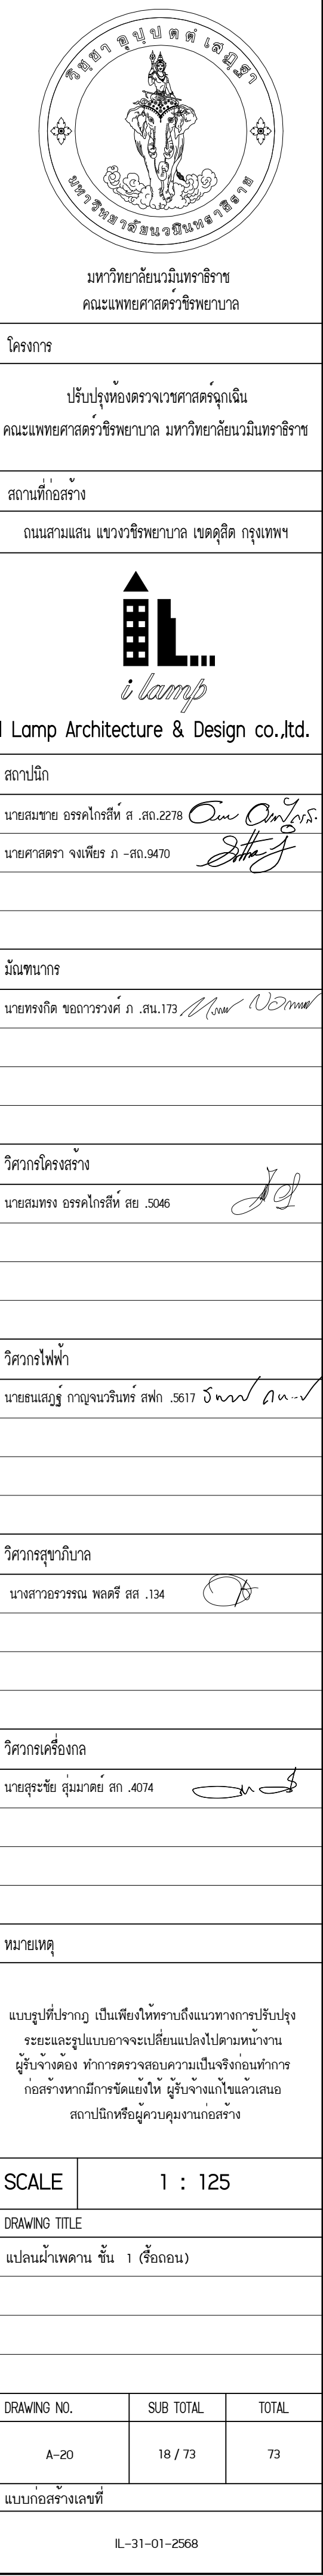 วิชฺชา อุปฺปตตํ เสฏฺฐา
มหาวิทยาลัยนวมินทราธิราช
มหาวิทยาลัยนวมินทราธิราช
คณะแพทยศาสตร์วชิรพยาบาล
โครงการ
ปรับปรุงห้องตรวจเวชศาสตร์ฉุกเฉิน
คณะแพทยศาสตร์วชิรพยาบาล มหาวิทยาลัยนวมินทราธิราช
สถานที่ก่อสร้าง
ถนนสามแสน แขวงวชิรพยาบาล เขตดุสิต กรุงเทพฯ
i lamp
I Lamp Architecture & Design co.,ltd.
สถาปนิก
นายสมชาย อรรคไกรสีห์ ส .สถ.2278
นายศาสตรา จงเพียร ภ -สถ.9470
มัณฑนากร
นายทรงกิต ขอถาวรวงศ์ ภ .สน.173
วิศวกรโครงสร้าง
นายสมทรง อรรคไกรสีห์ สย .5046
วิศวกรไฟฟ้า
นายธนเสฏฐ์ กาญจนวรินทร์ สฟก .5617
วิศวกรสุขาภิบาล
นางสาวอรวรรณ พลตรี สส .134
วิศวกรเครื่องกล
นายสุระชัย สุ่มมาตย์ สก .4074
หมายเหตุ
แบบรูปที่ปรากฎ เป็นเพียงให้ทราบถึงแนวทางการปรับปรุง
ระยะและรูปแบบอาจจะเปลี่ยนแปลงไปตามหน้างาน
ผู้รับจ้างต้อง ทำการตรวจสอบความเป็นจริงก่อนทำการ
ก่อสร้างหากมีการขัดแย้งให้ ผู้รับจ้างแก้ไขแล้วเสนอ
สถาปนิกหรือผู้ควบคุมงานก่อสร้าง
SCALE 1 : 125
DRAWING TITLE
แปลนฝ้าเพดาน ชั้น 1 (รื้อถอน)
DRAWING NO. SUB TOTAL TOTAL
A-20 18 / 73 73
แบบก่อสร้างเลขที่
IL-31-01-2568